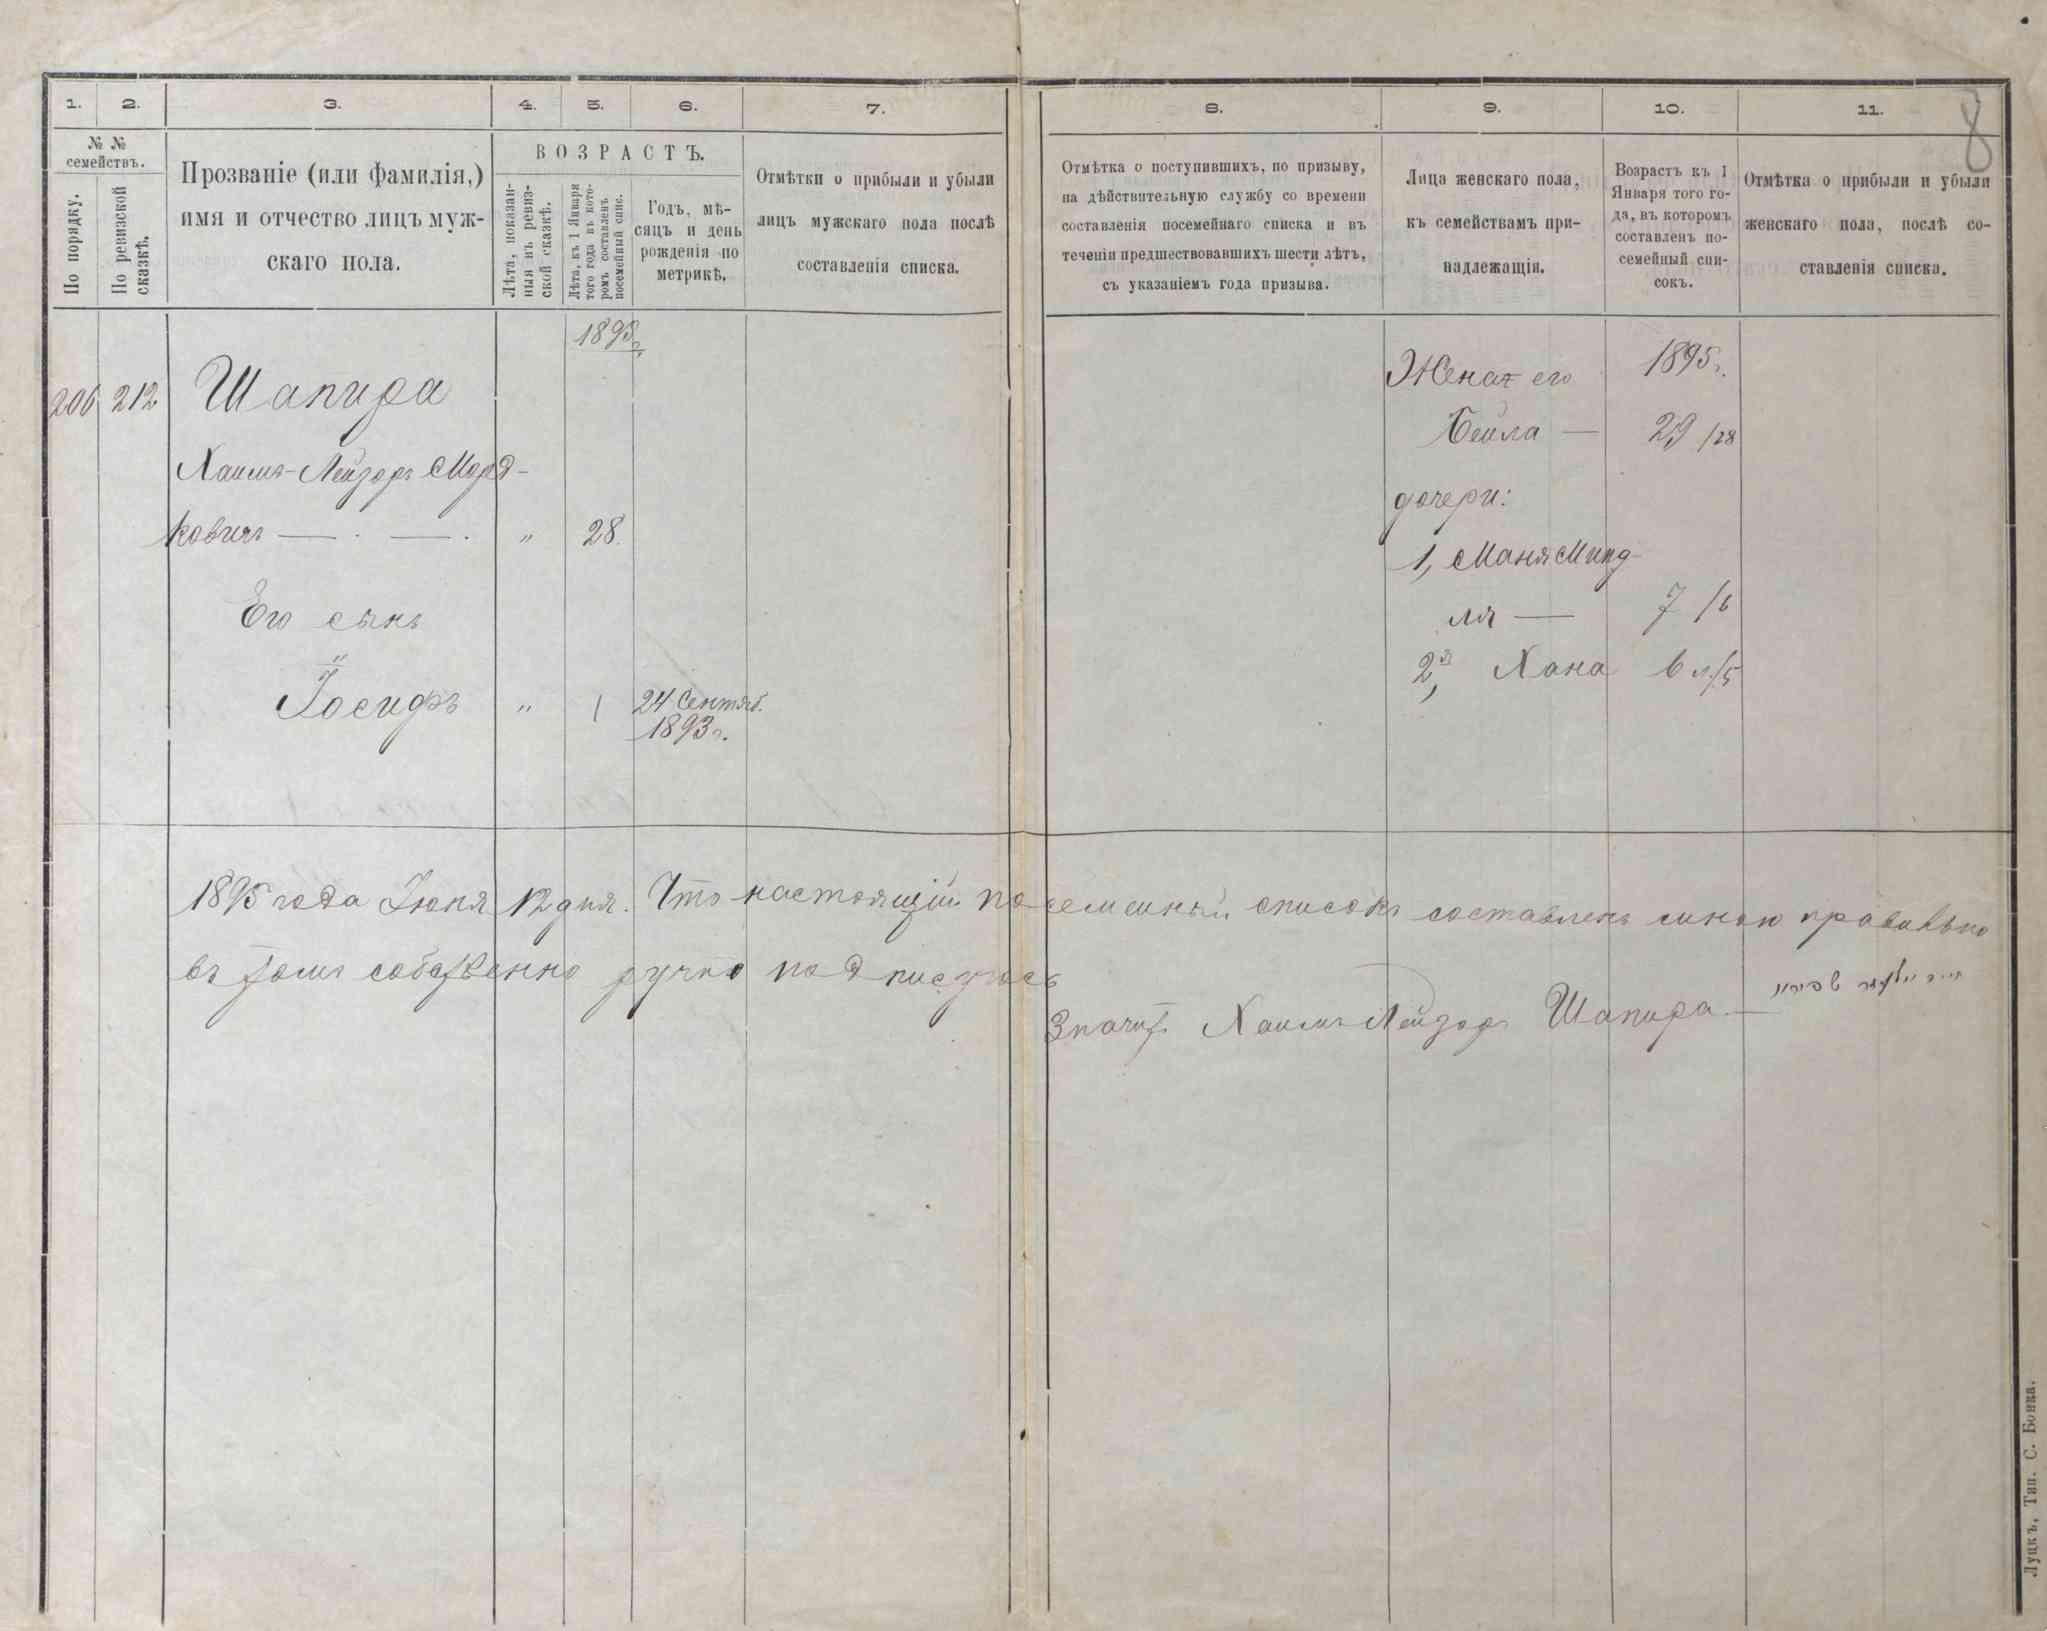 1. 2. 3. 4. 5. 6. 7. 8. 9. 10. 11.
8
№ № семействъ.
По порядку.
По ревизской сказкѣ.
Прозваніе (или фамилія,)
имя и отчество лицъ муж-
скаго пола.
ВОЗРАСТЪ.
Лѣта, показан-
ныя въ ревиз-
ской сказкѣ.
Лѣта, къ 1 Января
того года въ кото-
ромъ составленъ
посемейный спис.
Годъ, мѣ-
сяцъ и день
рожденія по
метрикѣ.
Отмѣтки о прибыли и убыли
лицъ мужскаго пола послѣ
составленія списка.
Отмѣтка о поступившихъ, по призыву,
на дѣйствительную службу со времени
составленія посемейнаго списка и въ
теченіи предшествовавшихъ шести лѣтъ,
съ указаніемъ года призыва.
Лица женскаго пола,
къ семействамъ при-
надлежащія.
Возрастъ къ 1
Января того го-
да, въ которомъ
составленъ по-
семейный спи-
сокъ.
Отмѣтка о прибыли и убыли
женскаго пола, послѣ со-
ставленія списка.
206 212 Шапира
Хаимъ-Лейзоръ Морд-
ковичъ — . — . " 28.
Его сынъ
Іосифъ " 1 24 Сентяб.
1893 г.
Жена его 1895 г.
Бейла — 29 /28
дочери:
1, Маня Минд-
ля — 7 /6
2, Хана 6 л/5
1895 года Іюня 12 дня. Что настоящій посемейный списокъ составленъ мною правильно
въ томъ собственно ручно подписуюсь
Значитъ Хаимъ Лейзоръ Шапира —
Луцкъ, Тип. С. Бонка.